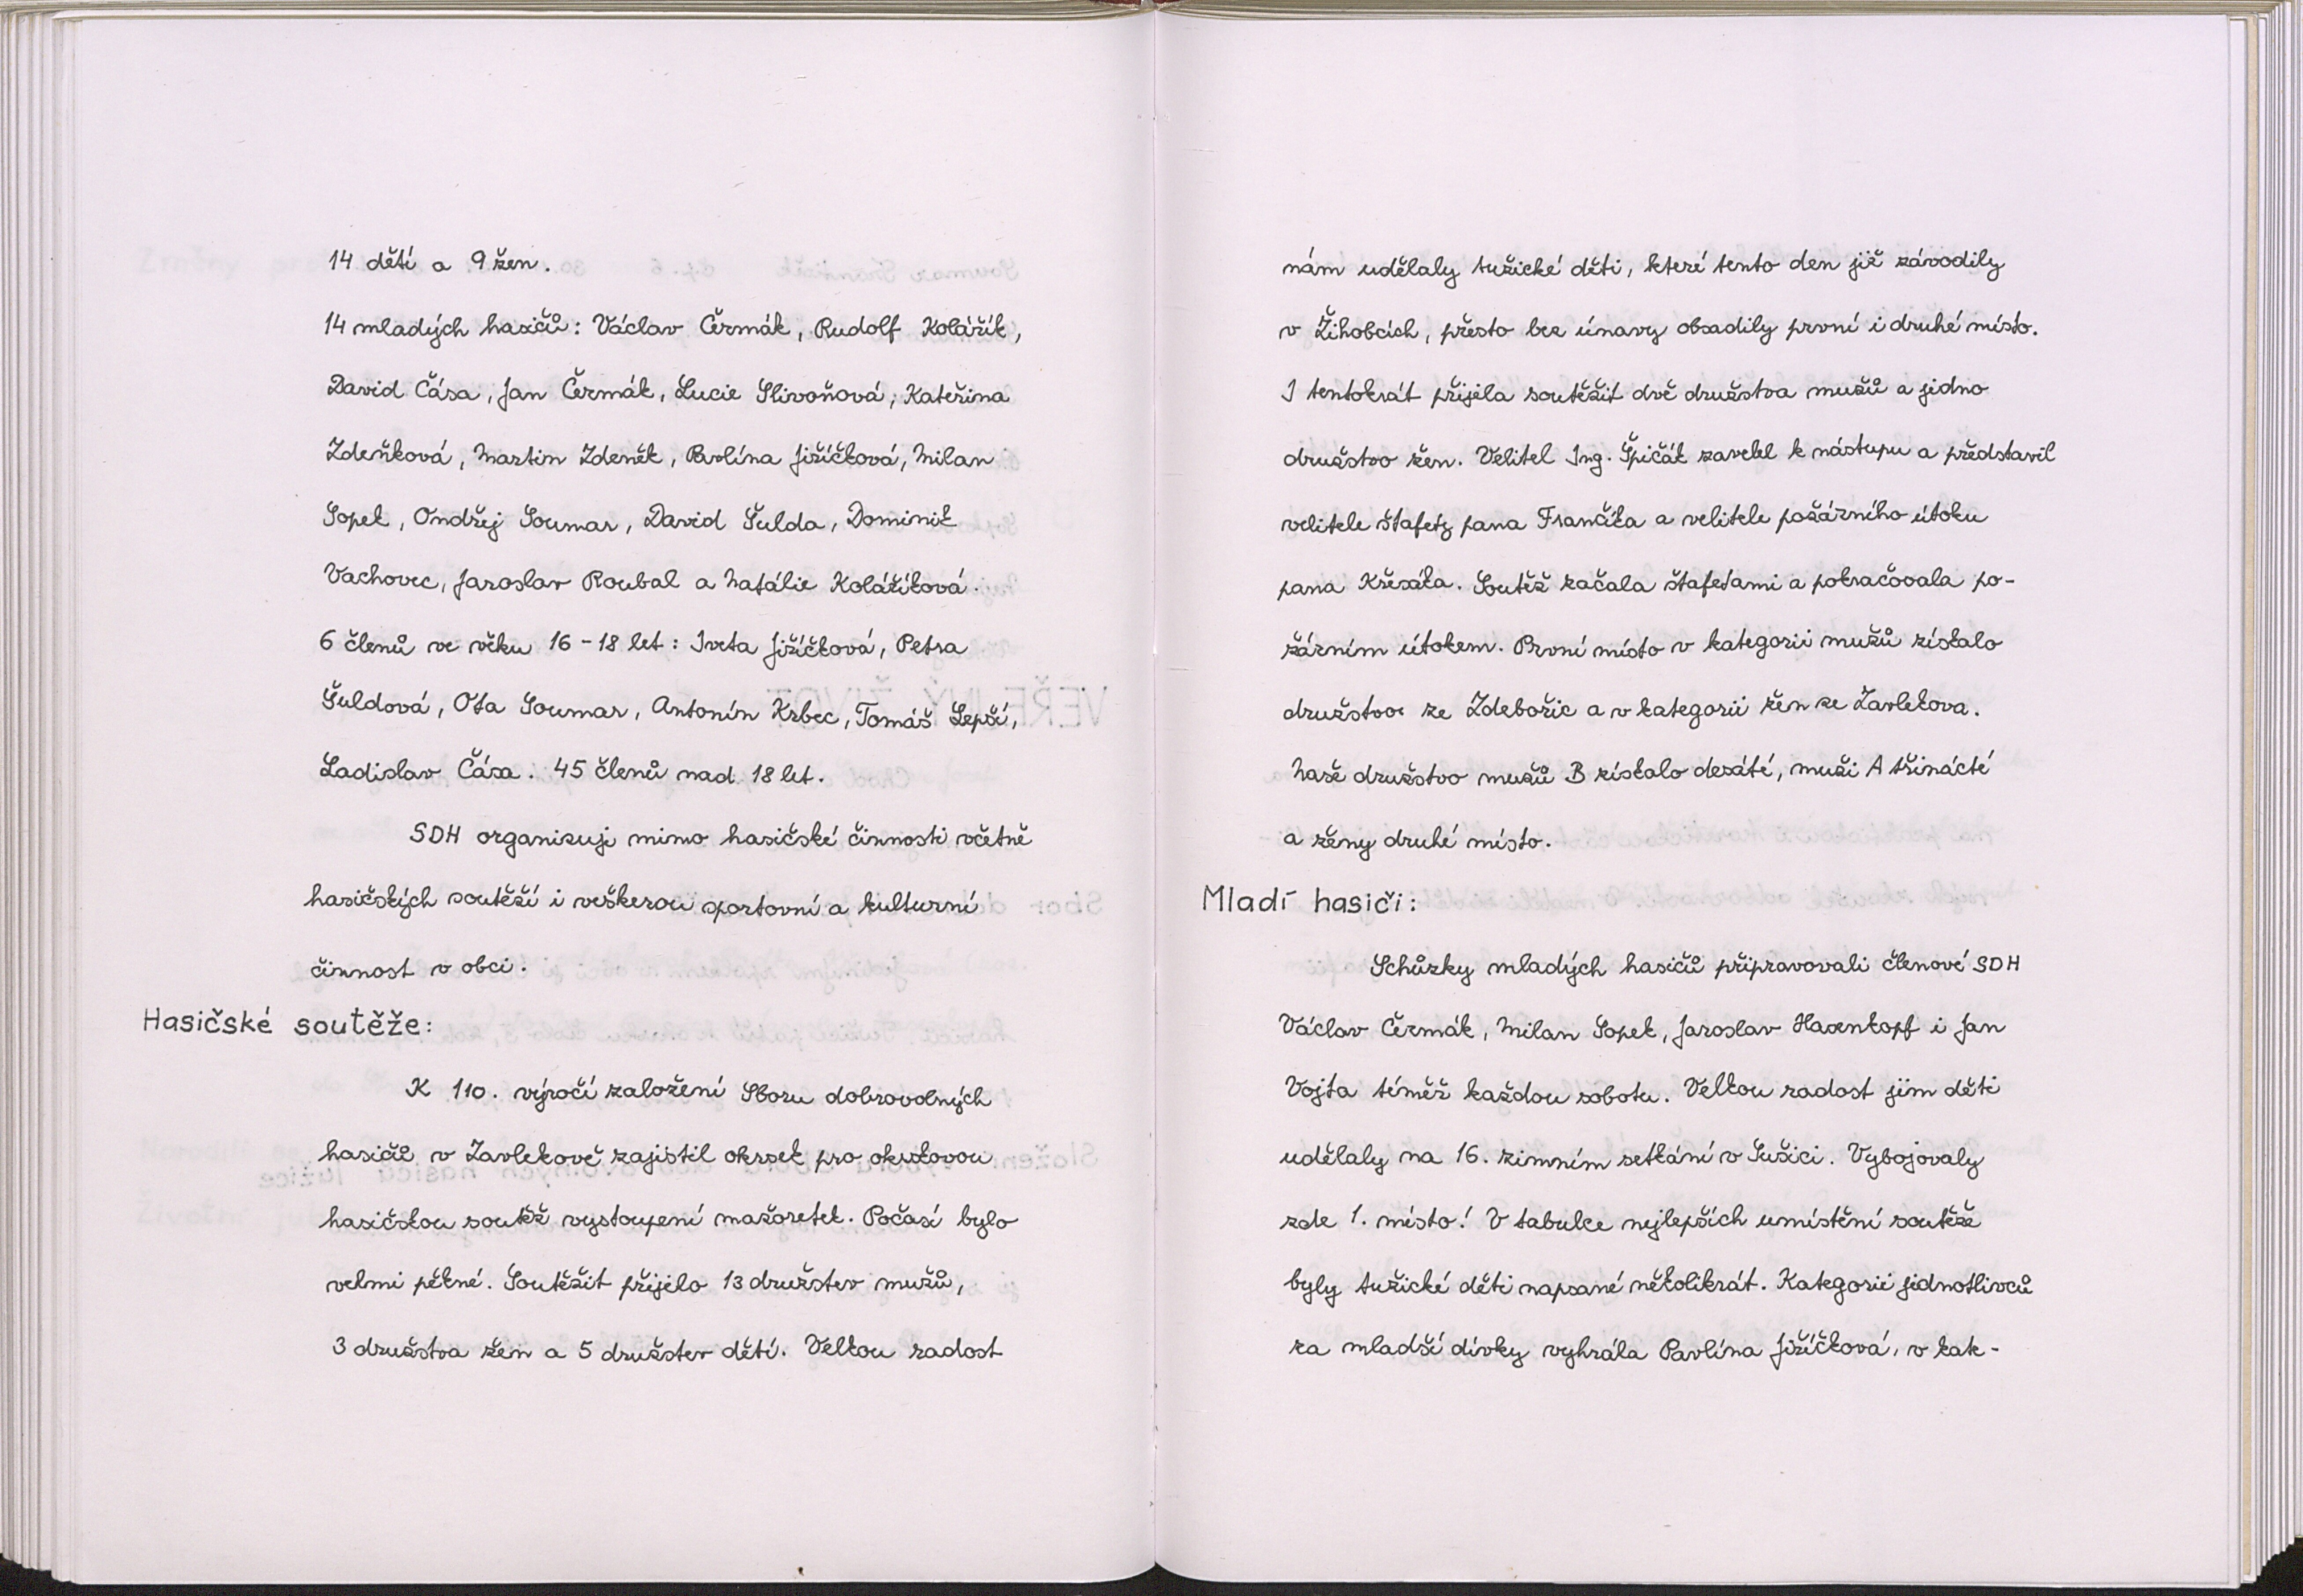 14 dětí a 9 žen.
14 mladých hasičů: Václav Čermák, Rudolf Kolářík,
David Čása, Jan Čermák, Lucie Slivoňová, Kateřina
Zdeňková, Martin Zdeněk, Pavlína Jiříčková, Milan
Sopek, Ondřej Soumar, David Šulda, Dominik
Vachovec, Jaroslav Roubal a Natálie Kolaříková.
6 členů ve věku 16-18 let: Iveta Jiříčková, Petra
Šuldová, Ota Soumar, Antonín Krbec, Tomáš Lepší,
Ladislav Čása. 45 členů nad 18 let.
SDH organizuje mimo hasičské činnosti včetně
hasičských soutěží i veškerou sportovní a kulturní
činnost v obci.
Hasičské soutěže:
K 110. výročí založení Sboru dobrovolných
hasičů v Zavlekově zajistil okrsek pro okrskovou
hasičskou soutěž vystoupení mažoretek. Počasí bylo
velmi pěkné. Soutěžit přijelo 13 družstev mužů,
3 družstva žen a 5 družstev dětí. Velkou radost
nám udělaly tužické děti, které tento den již závodily
v Žihobcích, přesto bez únavy obsadily první i druhé místo.
I tentokrát přijela soutěžit dvě družstva mužů a jedno
družstvo žen. Velitel Ing. Špičák zavelel k nástupu a představil
velitele štafety pana Frančíka a velitele požárního útoku
pana Křesáka. Soutěž začala štafetami a pokračovala po-
žárním útokem. První místo v kategorii mužů získalo
družstvo ze Zdebořic a v kategorii žen ze Zavlekova.
Naše družstvo mužů B získalo desáté, muži A třinácté
a ženy druhé místo.
Mladí hasiči:
Schůzky mladých hasičů připravovali členové SDH
Václav Čermák, Milan Sopek, Jaroslav Hasenkopf i Jan
Vojta téměř každou sobotu. Velkou radost jim děti
udělaly na 16. zimním setkání v Sušici. Vybojovaly
zde 1. místo! V tabulce nejlepších umístění soutěže
byly tužické děti napsané několikrát. Kategorii jednotlivců
za mladší dívky vyhrála Pavlína Jiříčková, v kak-